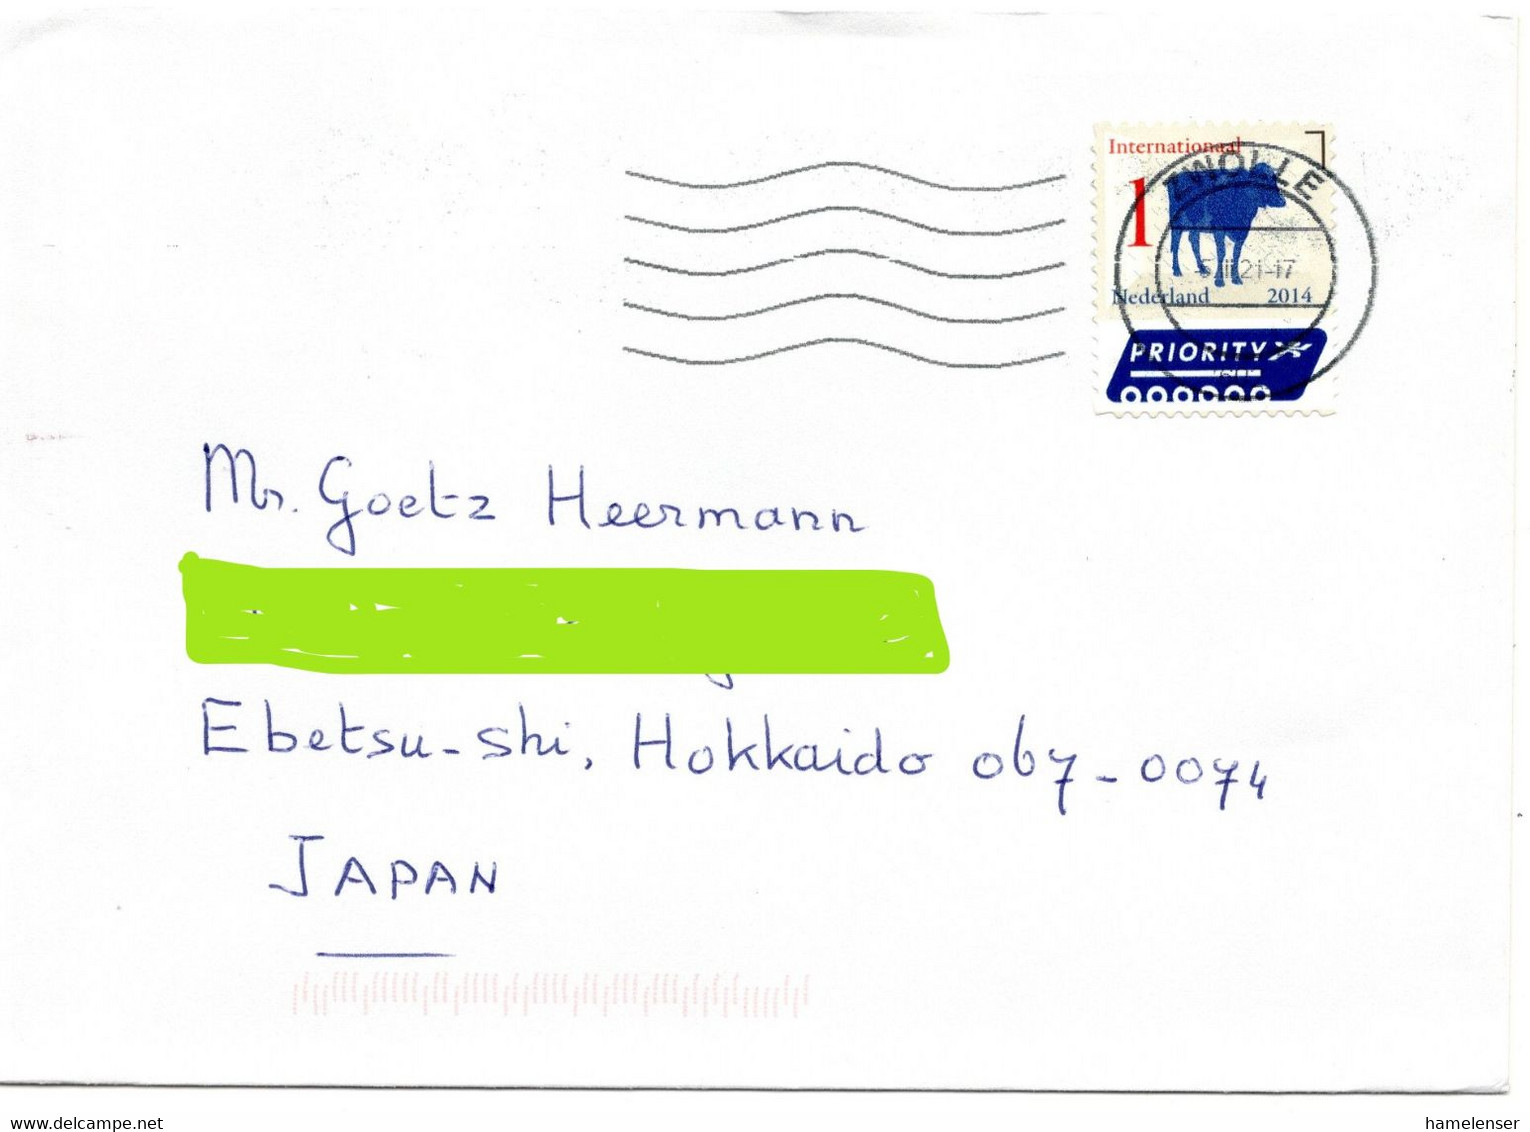 Internationaal
1
ZWOLLE
21-17
Nederland 2014
PRIORITY
Mr. Goetz Heermann
Ebetsu-shi, Hokkaido 067-0074
JAPAN
www.delcampe.net
hamelenser